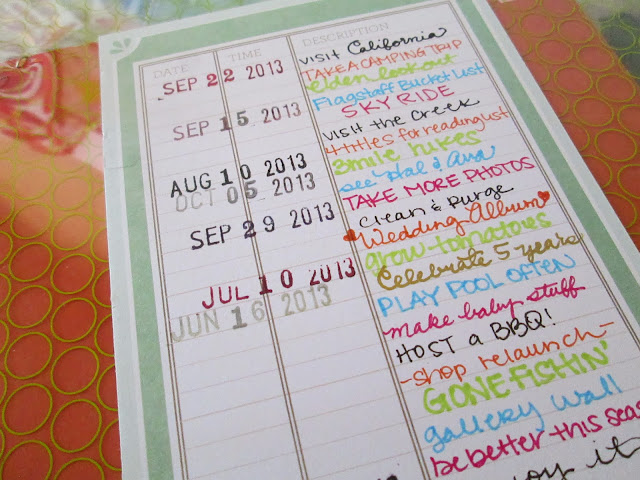 DATE TIME DESCRIPTION
SEP 22 2013
SEP 15 2013
AUG 10 2013
OCT 05 2013
SEP 29 2013
JUL 10 2013
JUN 16 2013
VISIT California
TAKE A CAMPING TRIP
elden lookout
Flagstaff Bucket List
SKY RIDE
VISIT the Creek
4 titles for reading list
3 mile hikes
see Hal & Ana
TAKE MORE PHOTOS
Clean & Purge
Wedding Album
grow tomatoes
Celebrate 5 years
PLAY POOL OFTEN
make baby stuff
HOST a BBQ!
-shop relaunch-
GONE FISHIN'
gallery wall
be better this
it